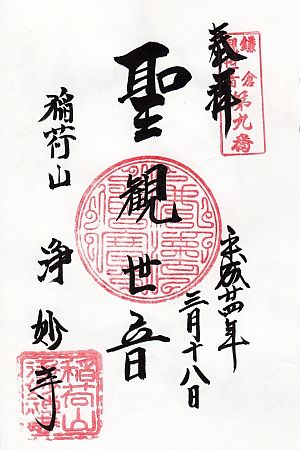 奉拝
鎌倉
観音霊場
第九番
平成廿四年
三月十八日
聖観世音
稲荷山
浄妙寺
稲荷山
浄妙寺